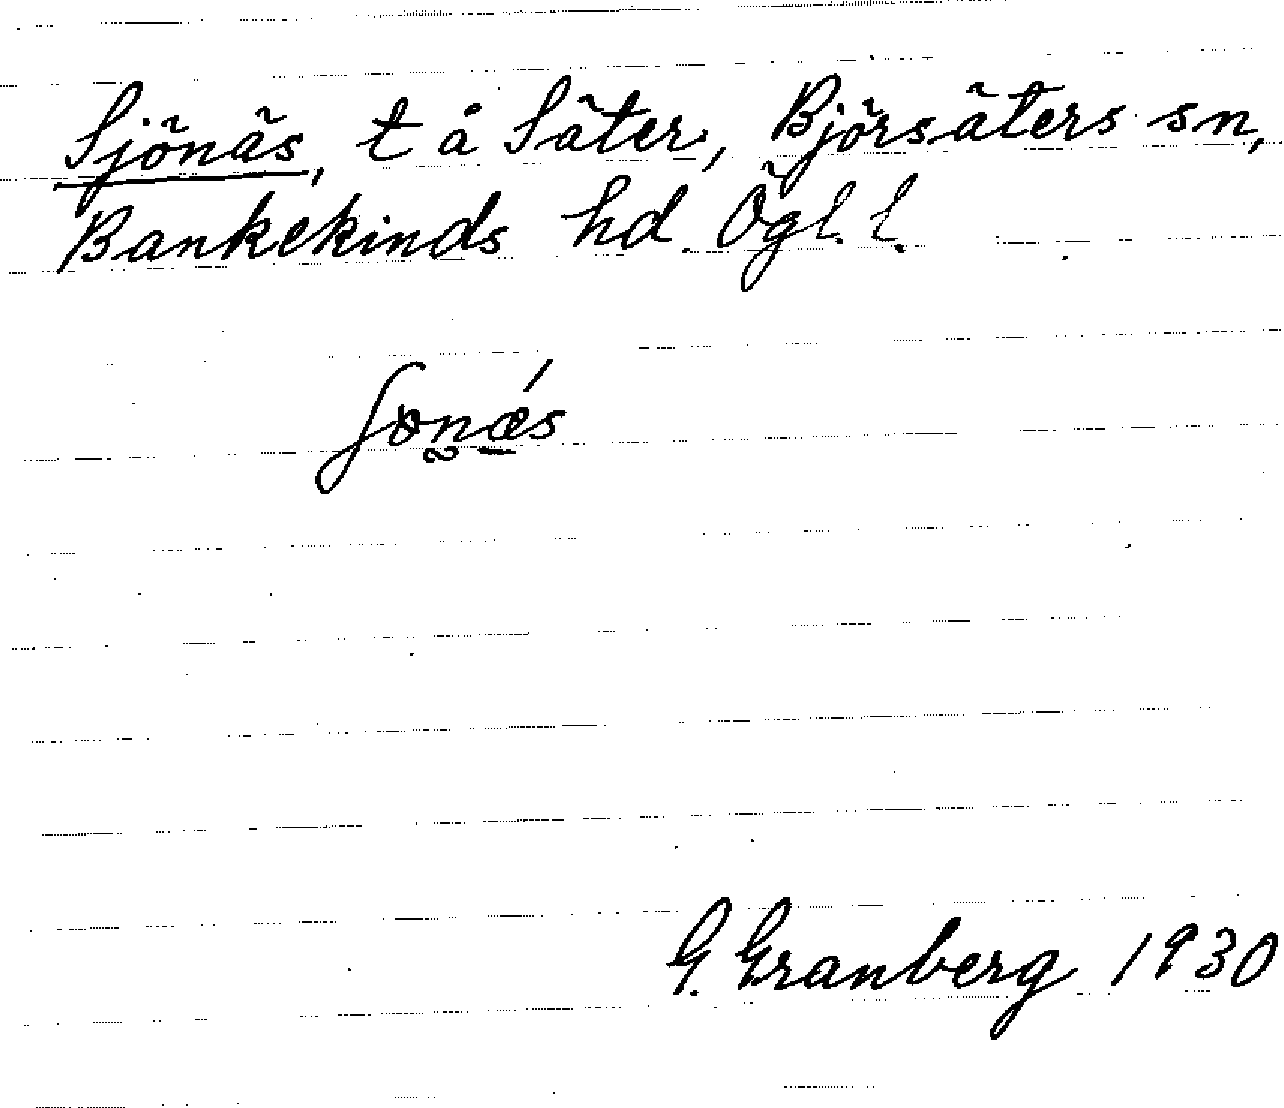 Sjönäs, t å Säter, Björsäters sn,
Bankekinds hd. Ögl. l.
G. Granberg 1930